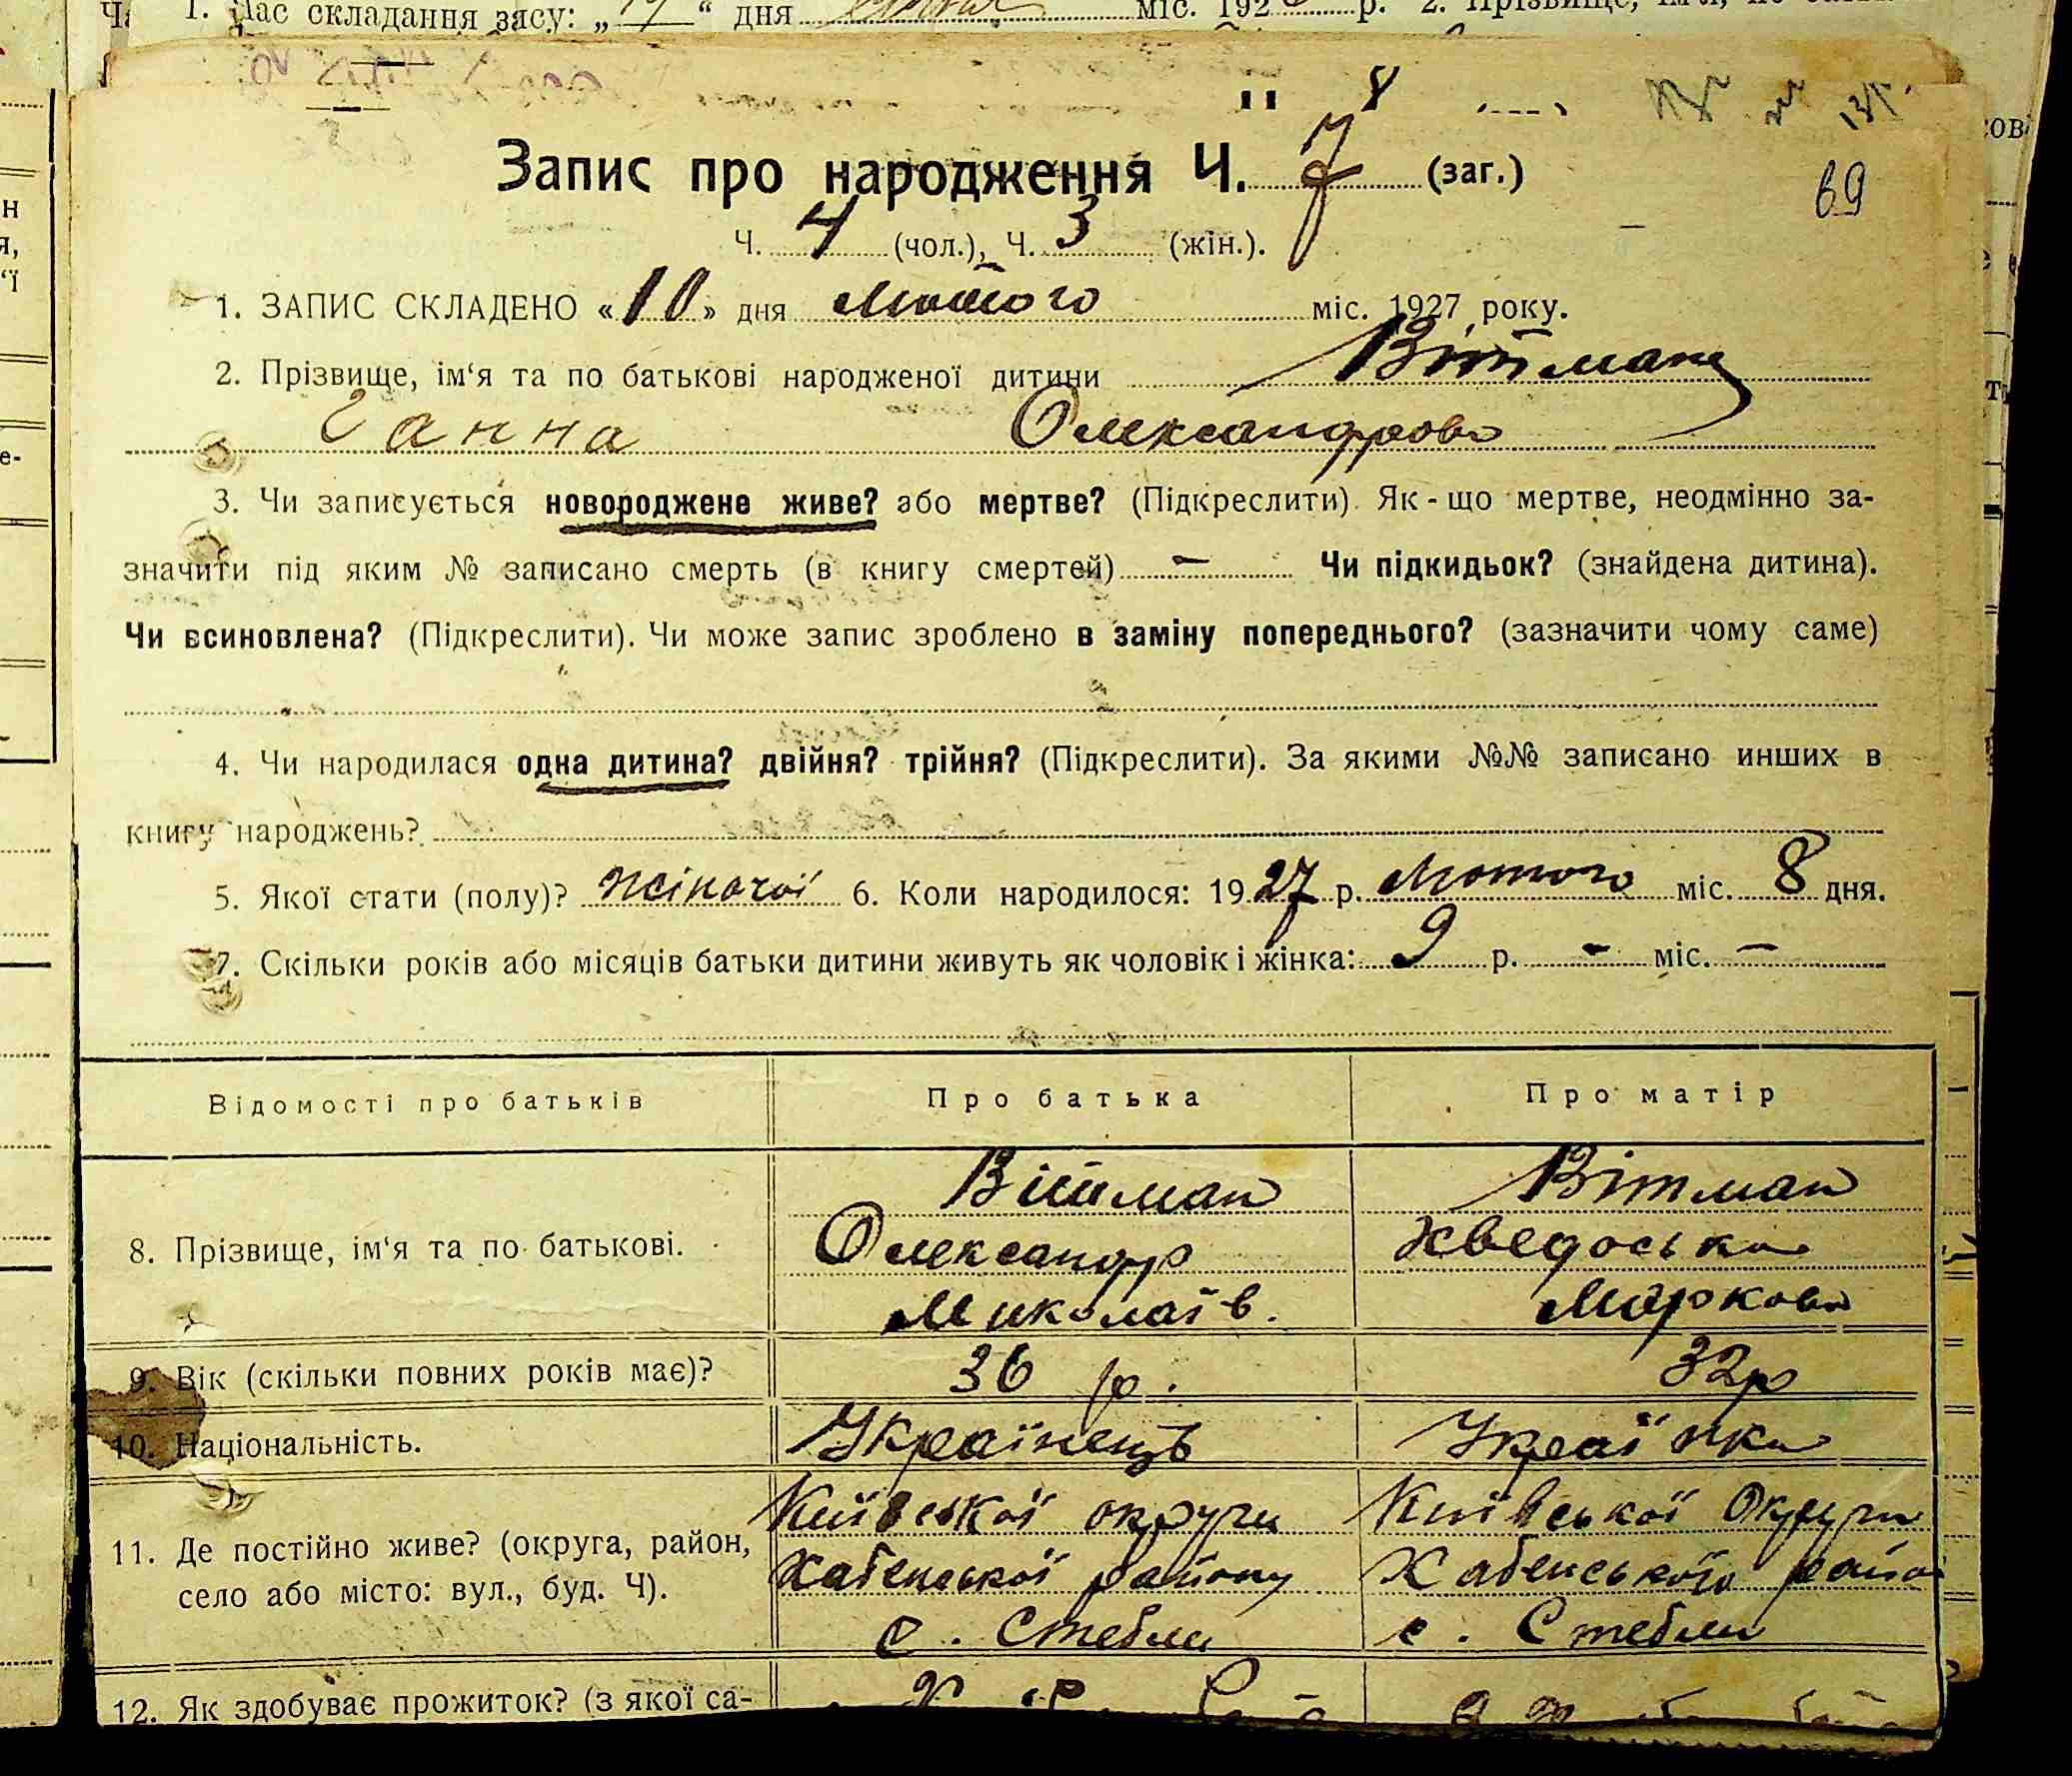 1. Час складання засу: „19“ дня міс. 192 р. 2. Прізвище, ім'я, по
Запис про народження Ч. 7 (заг.)
69
Ч. 4 (чол.), Ч. 3 (жін.).
1. ЗАПИС СКЛАДЕНО «10» дня Лютого міс. 1927 року.
2. Прізвище, ім‘я та по батькові народженої дитини Вітман
Ганна Олександрова
3. Чи записується новороджене живе? або мертве? (Підкреслити). Як-що мертве, неодмінно за-
значити під яким № записано смерть (в книгу смертей) – Чи підкидьок? (знайдена дитина).
Чи всиновлена? (Підкреслити). Чи може запис зроблено в заміну попереднього? (зазначити чому саме)
4. Чи народилася одна дитина? двійня? трійня? (Підкреслити). За якими №№ записано инших в
книгу народжень?
5. Якої стати (полу)? жіночої 6. Коли народилося: 1927 р. Лютого міс. 8 дня.
7. Скільки років або місяців батьки дитини живуть як чоловік і жінка: 9 р. - міс. –
Відомості про батьків Про батька Про матір
Вітман Вітман
8. Прізвище, ім‘я та по батькові. Олександр Хведоська
Миколаїв. Маркова
9. Вік (скільки повних років має)? 36 р. 32р
10. Національність. Українець Українка
Київської округи Київської Округи
11. Де постійно живе? (округа, район, Хабенської району Хабенського райо
село або місто: вул., буд. Ч). с. Стебли с. Стебли
12. Як здобуває прожиток? (з якої са-